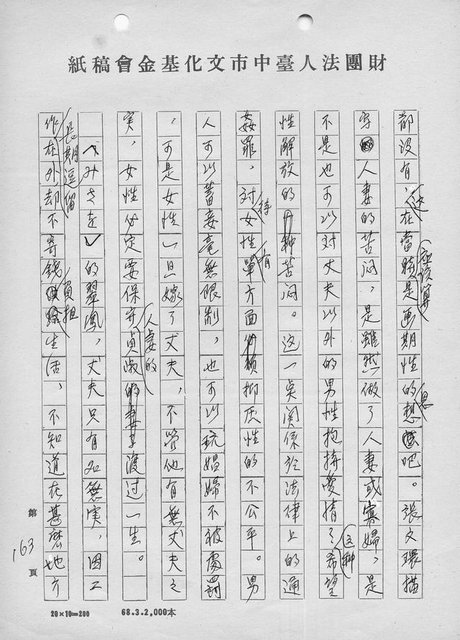 財團法人臺中市文化基金會稿紙
都没有,這在當時應該算是画期性的思想吧。張文環描
写人妻的苦闷,是雖然做了人妻或寡婦,是
不是也可以对丈夫以外的男性抱持愛情?希望
性解放的這种苦闷。這一点関係於法律上的通
姦罪,对女性持有單方面必須抑压性的不公平。男
人可以蓄妾毫無限制,也可以玩娼婦不被處罰
,可是女性一旦嫁了丈夫,不管他有無丈夫之
実,女性必定要保守貞淑的人妻的渡过一生。
〈みさを〉的翠凰,丈夫只有名無実,因工
作長期逗留在外却不寄錢負担生活,不知道在甚麼地方
第 163 頁
20×10=200
68.3.2,000本